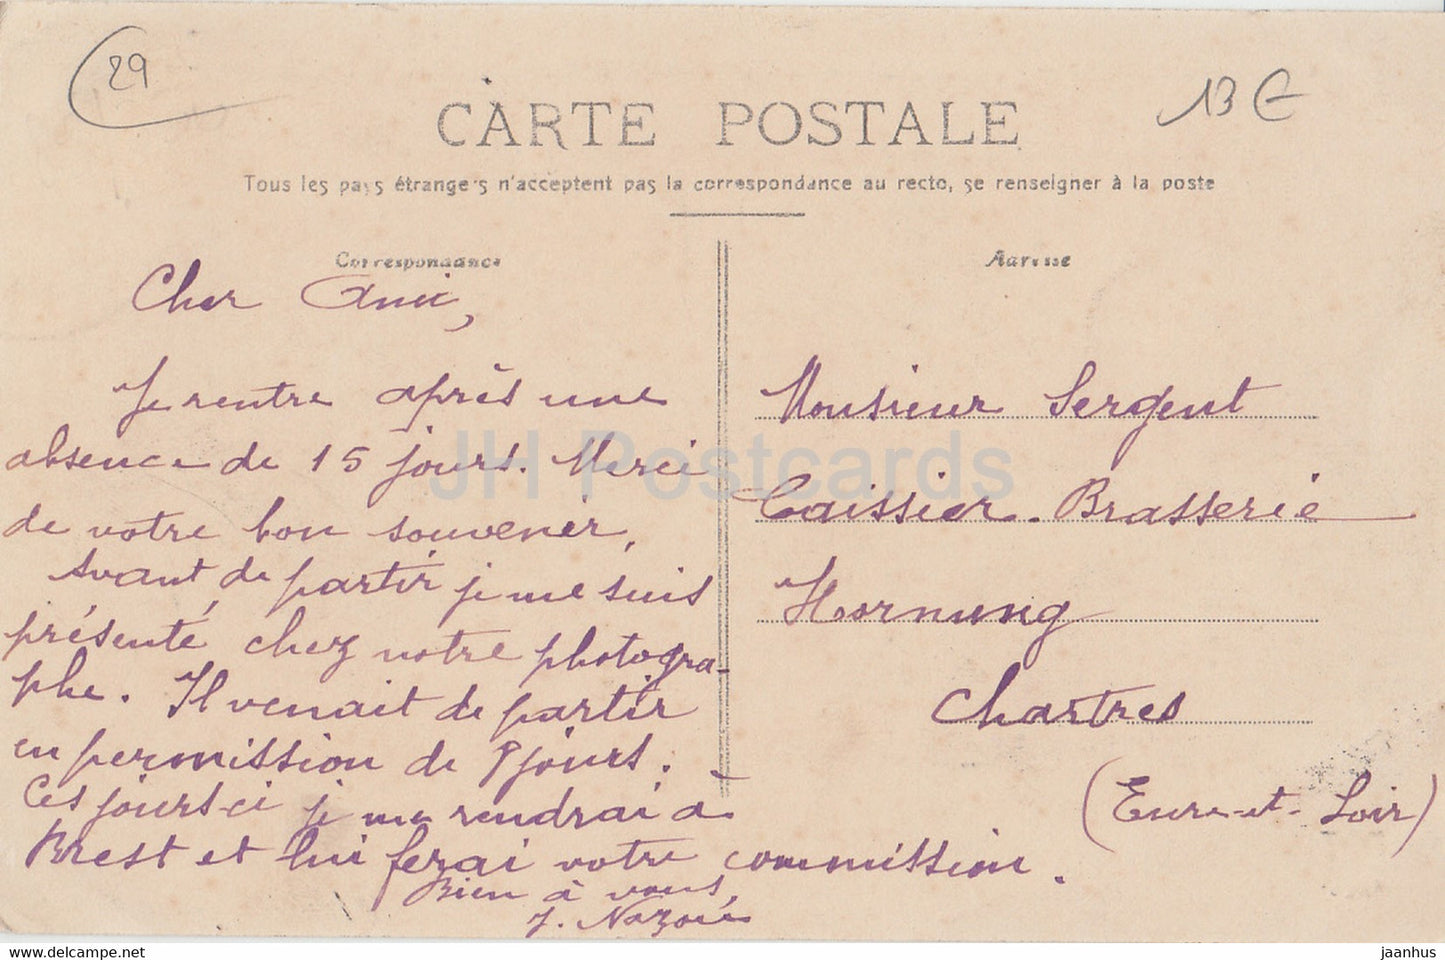 29
13 €
CARTE POSTALE
Tous les pays étrangers n'acceptent pas la correspondance au recto, se renseigner à la poste
Correspondance
Cher Ami,
Je rentre après une
absence de 15 jours. Merci
de votre bon souvenir,
Avant de partir je me suis
présenté chez votre photogra-
phe. Il venait de partir
en permission de 8 jours.
Ces jours-ci je me rendrai à
Brest et lui ferai votre commission.
Bien à vous,
J.
Adresse
Monsieur Sergent
Caissier. Brasserie
Hornung
Chartres
(Eure-et-Loir)
JH Postcards
www.jhpostcards.com
jaanhus